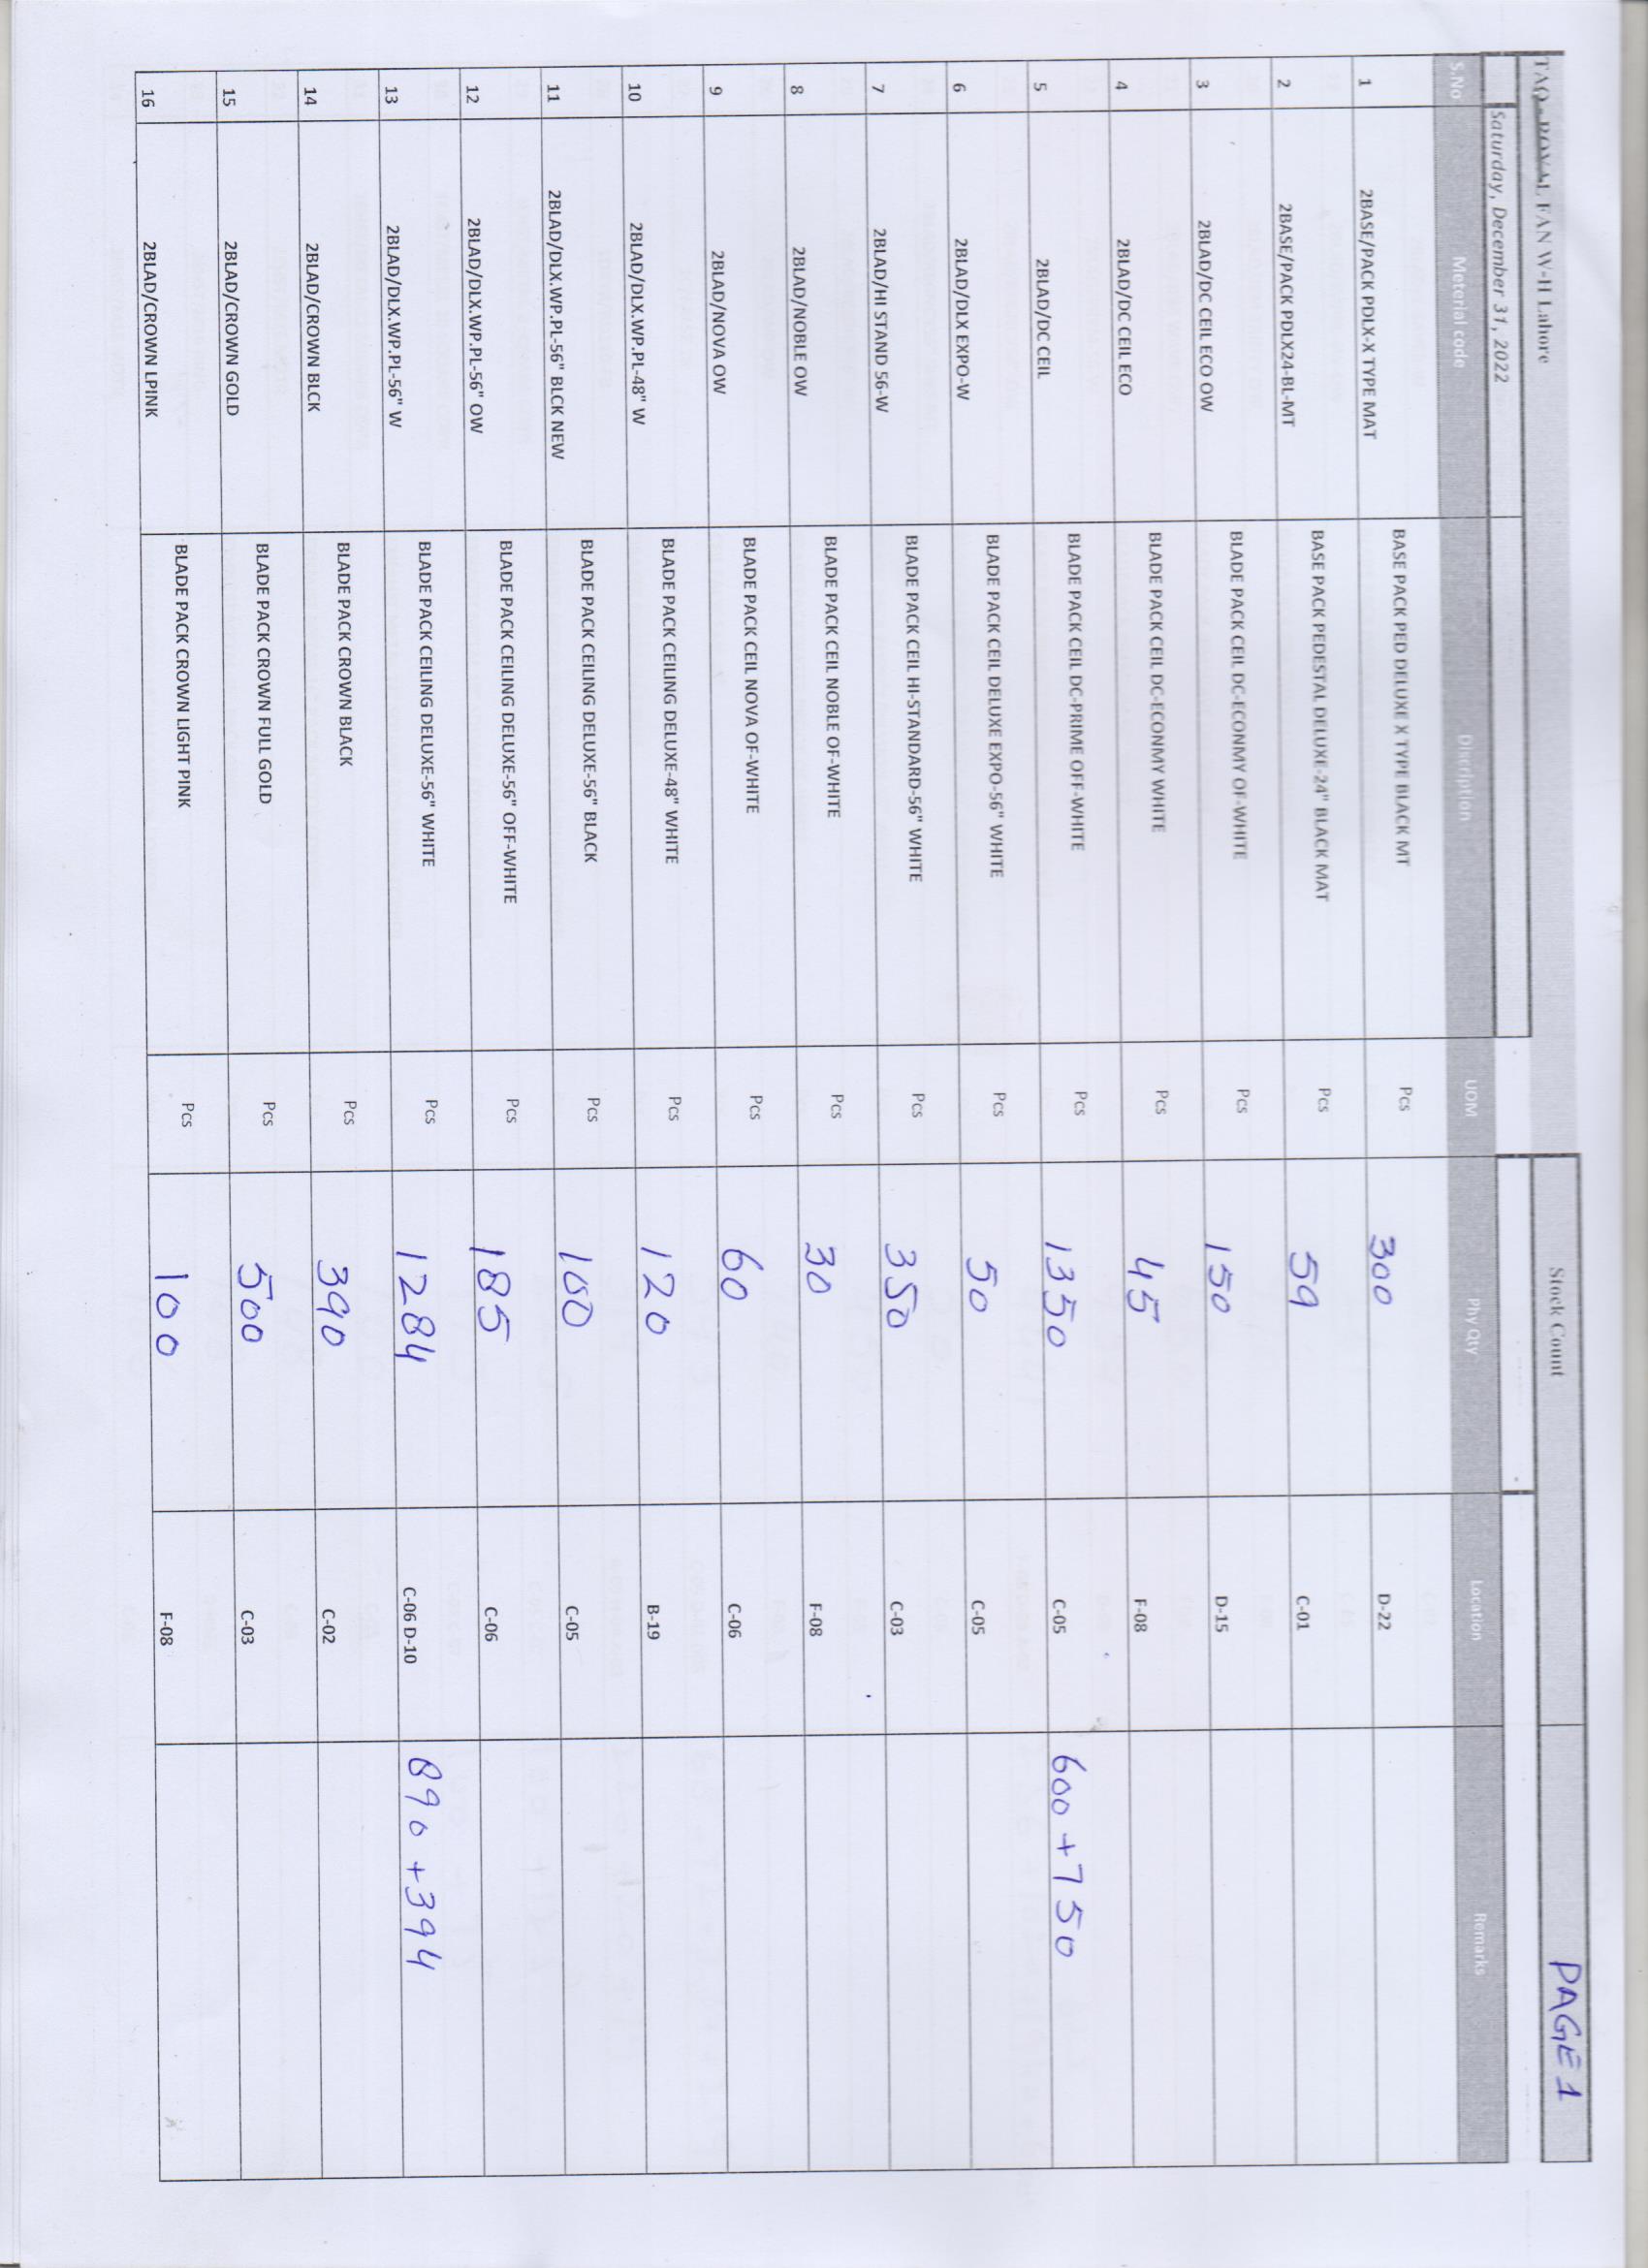 PAGE 1
TAQ - ROYAL FAN W-H Lahore Stock Count
Saturday, December 31, 2022
S.No Meterial code Discription UOM Phy Qty Location Remarks
1 2BASE/PACK PDLX-X TYPE MAT BASE PACK PED DELUXE X TYPE BLACK MT Pcs 300 D-22
2 2BASE/PACK PDLX24-BL-MT BASE PACK PEDESTAL DELUXE-24" BLACK MAT Pcs 59 C-01
3 2BLAD/DC CEIL ECO OW BLADE PACK CEIL DC-ECONMY OF-WHITE Pcs 150 D-15
4 2BLAD/DC CEIL ECO BLADE PACK CEIL DC-ECONMY WHITE Pcs 45 F-08
5 2BLAD/DC CEIL BLADE PACK CEIL DC-PRIME OFF-WHITE Pcs 1350 C-05 600 +750
6 2BLAD/DLX EXPO-W BLADE PACK CEIL DELUXE EXPO-56" WHITE Pcs 50 C-05
7 2BLAD/HI STAND 56-W BLADE PACK CEIL HI-STANDARD-56" WHITE Pcs 350 C-03
8 2BLAD/NOBLE OW BLADE PACK CEIL NOBLE OF-WHITE Pcs 30 F-08
9 2BLAD/NOVA OW BLADE PACK CEIL NOVA OF-WHITE Pcs 60 C-06
10 2BLAD/DLX.WP.PL-48" W BLADE PACK CEILING DELUXE-48" WHITE Pcs 120 B-19
11 2BLAD/DLX.WP.PL-56" BLCK NEW BLADE PACK CEILING DELUXE-56" BLACK Pcs 100 C-05
12 2BLAD/DLX.WP.PL-56" OW BLADE PACK CEILING DELUXE-56" OFF-WHITE Pcs 185 C-06
13 2BLAD/DLX.WP.PL-56" W BLADE PACK CEILING DELUXE-56" WHITE Pcs 1284 C-06 D-10 890 +394
14 2BLAD/CROWN BLCK BLADE PACK CROWN BLACK Pcs 390 C-02
15 2BLAD/CROWN GOLD BLADE PACK CROWN FULL GOLD Pcs 500 C-03
16 2BLAD/CROWN LPINK BLADE PACK CROWN LIGHT PINK Pcs 100 F-08